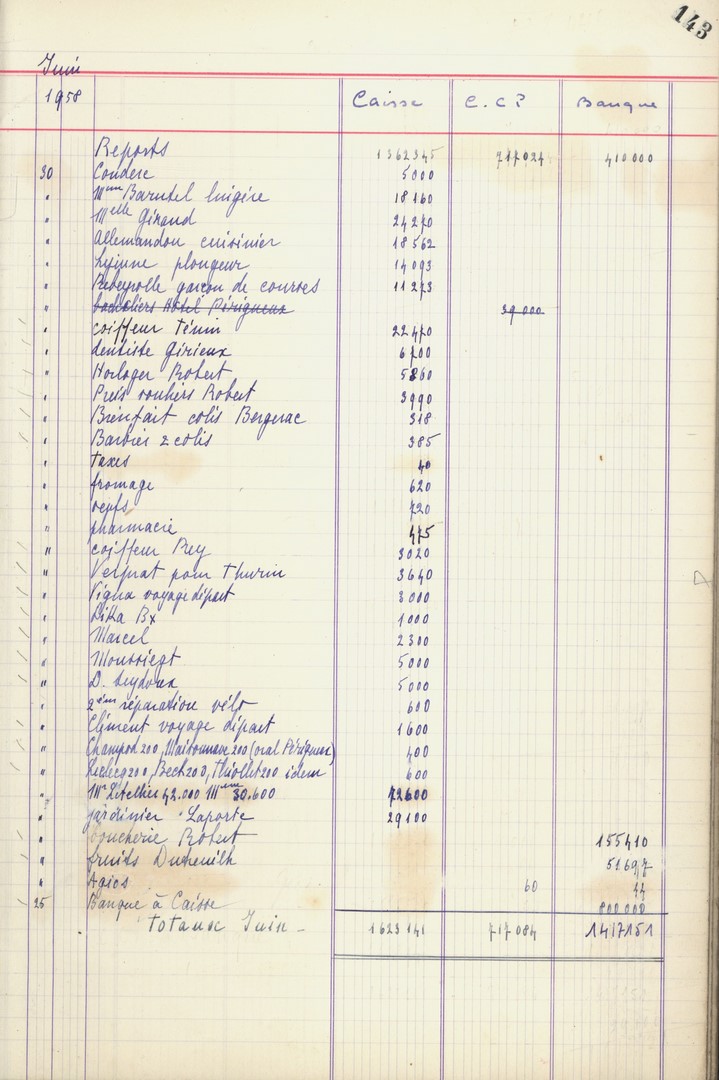 143
Juin
1958 Caisse C.C.P Banque
Reports 1362345 717024 410000
30 Couderc 5000
" Mme Barutel lingère 18160
" Melle Giraud 24270
" Allemandou cuisinier 18562
" plongeur 14093
" Rebeyrolle garçon de courses 11273
" Hôtel Périgueux 39000
" coiffeur Ténin 22470
" dentiste Girieux 6700
" Horloger Robert 5860
" Robert 3990
" Bienfait colis Bergerac 318
" Barbier 2 colis 385
" taxes 40
" fromage 620
" oeufs 720
" pharmacie 475
" coiffeur Rey 3020
" pour Thurin 3640
" voyage départ 3000
" Bx 1000
" Marcel 2300
" 5000
" D. Leydoux 5000
" 2ème réparation vélo 600
" Clément voyage départ 1600
" Champod 200, Maisonnave 200 (oral Périgueux) 400
" Leclecq 200, Bech 200, Thiollet 200 idem 600
" Mr Letellier 42.000 Mme 30.600 72600
" jardinier Laporte 29100
" boucherie Robert 155410
" fruits Ducheuilh 51697
" Agios 60 44
25 Banque à Caisse 800 000
totaux Juin - 1623141 717084 1417151